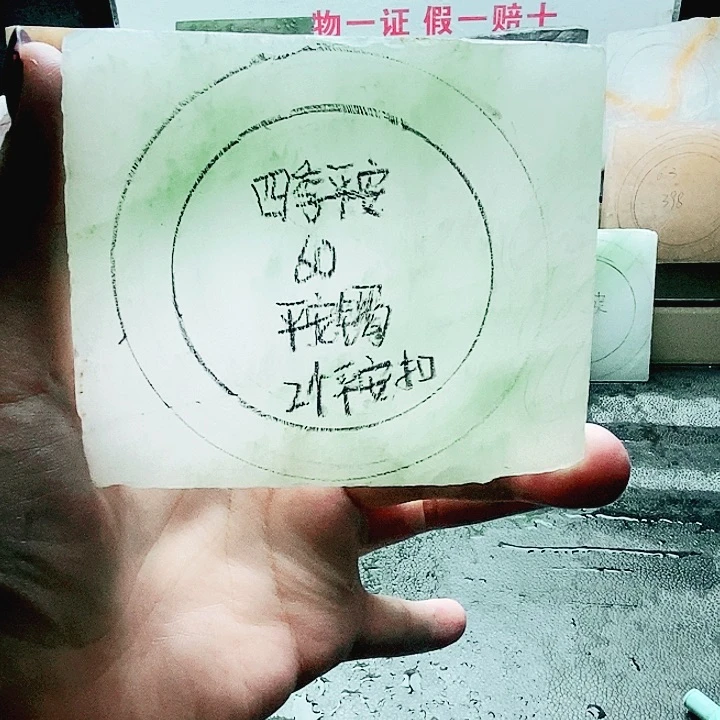 物一证 假一赔十
四季平安
60
平安镯
2个平安扣
398